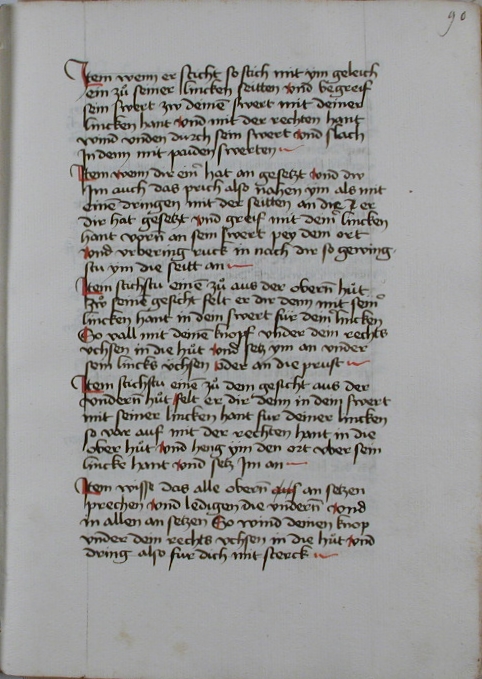 90
Item wenn er sticht so stich mit ym geleich
ein zů seiner lincken seitten vnd begreif
sein swert zw deinē swert mit deiner
lincken hant vnd mit der rechten hant
wind vnden durch sein swert vnd slach
In denn mit paiden swerten
Item wem dir einˀ hat an gesetzt vnd dw
Im auch das prich also nahen ym als mit
einē dringen mit der seitten an die er
dir hat gesetzt vnd greif mit demˀ lincken
hant vorn̄ an sein swert pey dem ort
vnd vbering ruck in nach dir so gewing
stu ym die seitt an
Item stichstu einē zů aus der obern̄ hůt
zw seinē gesicht felt er dir denn mit seinˀ
lincken hant in dein swert fur demˀ lincken
So vall mit deinē knopf vnder dem rechts
vchsen in die hůt vnd setz ym an vnder
sein lincks vchsen oder an die prust
Item stichstu einē zů dem gesicht aus der
vndern̄ hůt felt er dir denn in dem swert
mit seiner lincken hant fur deiner lincken
so var auf mit der rechten hant in die
ober hůt vnd heng ym den ort vber sein
lincke hant vnd setz Im an
Item wisse das alle obern̄ an setzen
prechen vnd ledigen die vndern̄ vnd
in allen an setzen So wind deinen knop
vnder dem rechts vchsen in die hůt vnd
dring also fur dich mit sterck